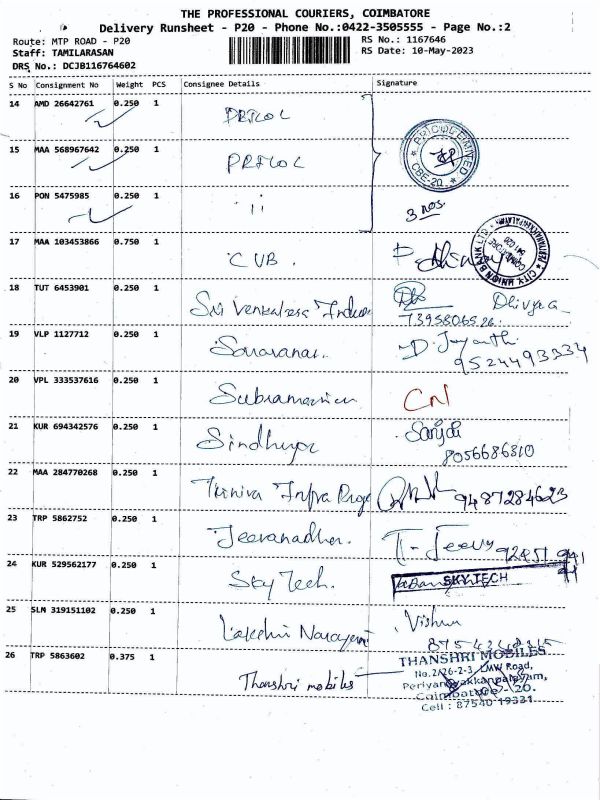 THE PROFESSIONAL COURIERS, COIMBATORE
Delivery Runsheet - P20 - Phone No.:0422-3505555 - Page No.:2
Route: MTP ROAD - P20 RS No.: 1167646
Staff: TAMILARASAN RS Date: 10-May-2023
DRS No.: DCJB116764602
S No Consignment No Weight PCS Consignee Details Signature
14 AMD 26642761 0.250 1 PRICOL
15 MAA 568967642 0.250 1 PRICOL
PRICOL LIMITED
CBE-20
16 PON 5475985 0.250 1 11
3 nos.
17 MAA 103453866 0.750 1 CUB.
CITY UNION BANK LTD.
COIMBATORE
641 020
18 TUT 6453901 0.250 1 Sri Venkatesa Divya
7395806526
19 VLP 1127712 0.250 1 Saravana. D. Jayanthi
9524493334
20 VPL 333537616 0.250 1 Subramanian CN
21 KUR 694342576 0.250 1 Sindhuja Sanjai
8056686310
22 MAA 284770268 0.250 1 Infra 9487284623
23 TRP 5862752 0.250 1 Jeevanadha. T- Jeeva
24 KUR 529562177 0.250 1 Sky Tech. SKY TECH
25 SLM 319151102 0.250 1 Lakshmi Narayana Vishnu
26 TRP 5863602 0.375 1 Thanshri mobiles
THANSHRI MOBILES
No.2/26-2-3, LMW Road,
Periyanayakkanpalayam,
Coimbatore - 20.
Cell : 87540 19331